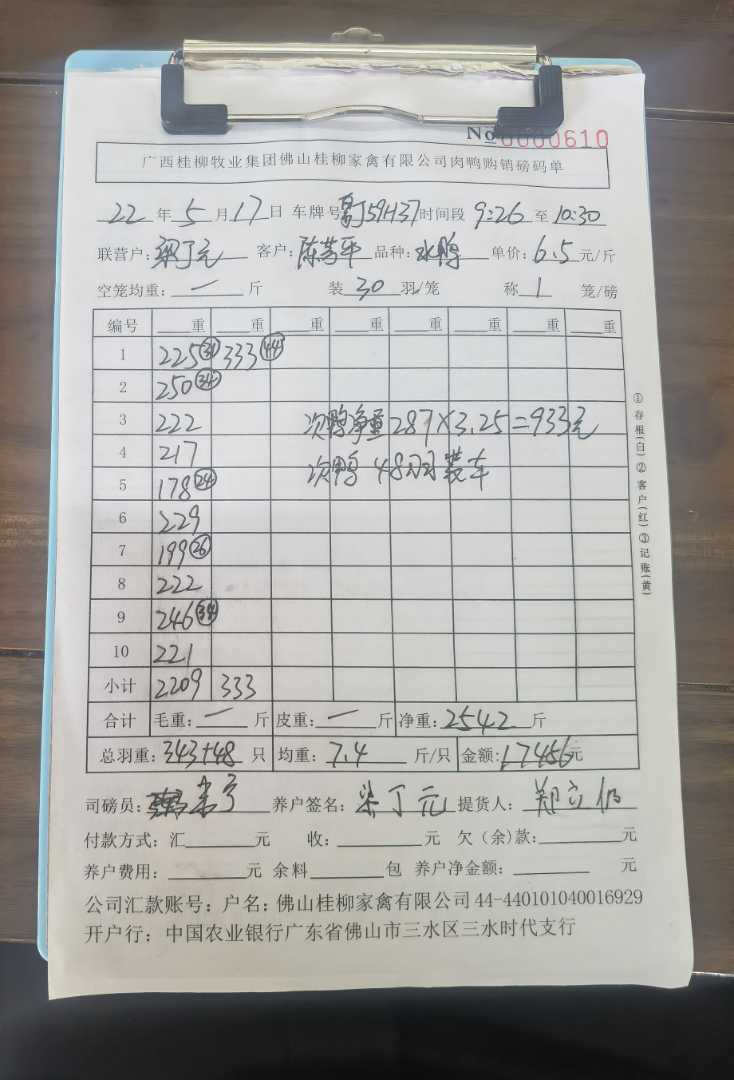 No 0000610
广西桂柳牧业集团佛山桂柳家禽有限公司肉鸭购销磅码单
22 年 5 月 17 日 车牌号 59H37 时间段 9:26 至 10:30
联营户: 梁丁元 客户: 陈芳平 品种: 水鸭 单价: 6.5 元/斤
空笼均重: 一 斤 装 30 羽/笼 称 1 笼/磅
编号 重 重 重 重 重 重 重 重
1 225 (31) 333 (44)
2 250 (34)
3 222 次鸭净重 287×3.25=933元
4 217
次鸭 48 公司装车
5 178 (24)
6 229
7 199 (26)
8 222
9 246 (34)
10 221
小计 2209 333
合计 毛重: 一 斤 皮重: 一 斤 净重: 2542 斤
总羽重: 343+48 只 均重: 7.4 斤/只 金额: 17456 元
司磅员: 养户签名: 梁丁元 提货人: 郑立
付款方式: 汇 元 收: 元 欠(余)款: 元
养户费用: 元 余料 包 养户净金额: 元
公司汇款账号: 户名: 佛山桂柳家禽有限公司 44-440101040016929
开户行: 中国农业银行广东省佛山市三水区三水时代支行
①存根(白)②客户(红)③记账(黄)